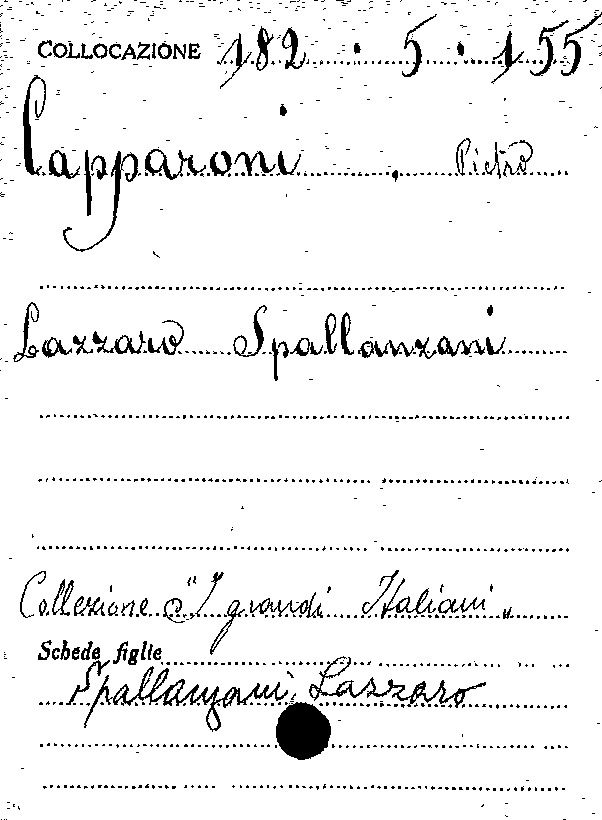 COLLOCAZIONE 182 . 5 . 155
Capparoni . Pietro
Lazzaro Spallanzani
Collezione "I grandi Italiani"
Schede figlie
Spallanzani, Lazzaro